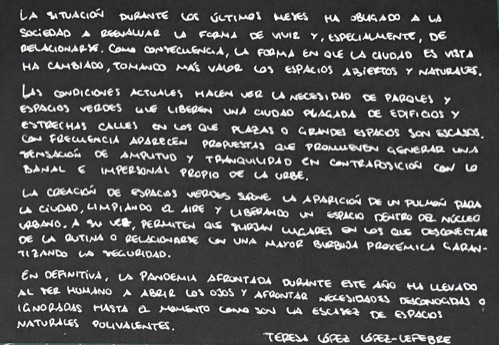 LA SITUACIÓN DURANTE LOS ÚLTIMOS MESES HA OBLIGADO A LA
SOCIEDAD A REEVALUAR LA FORMA DE VIVIR Y, ESPECIALMENTE, DE
RELACIONARSE. COMO CONSECUENCIA, LA FORMA EN QUE LA CIUDAD ES VISTA
HA CAMBIADO, TOMANDO MÁS VALOR LOS ESPACIOS ABIERTOS Y NATURALES.
LAS CONDICIONES ACTUALES HACEN VER LA NECESIDAD DE PARQUES Y
ESPACIOS VERDES QUE LIBEREN UNA CIUDAD PLAGADA DE EDIFICIOS Y
ESTRECHAS CALLES EN LOS QUE PLAZAS O GRANDES ESPACIOS SON ESCASOS.
CON FRECUENCIA APARECEN PROPUESTAS QUE PROMUEVEN GENERAR UNA
SENSACIÓN DE AMPLITUD Y TRANQUILIDAD EN CONTRAPOSICIÓN CON LO
BANAL E IMPERSONAL PROPIO DE LA URBE.
LA CREACIÓN DE ESPACIOS VERDES SUPONE LA APARICIÓN DE UN PULMÓN PARA
LA CIUDAD, LIMPIANDO EL AIRE Y LIBERANDO UN ESPACIO DENTRO DEL NÚCLEO
URBANO. A SU VEZ, PERMITEN QUE SURJAN LUGARES EN LOS QUE DESCONECTAR
DE LA RUTINA O RELACIONARSE CON UNA MAYOR BURBUJA PROXÉMICA GARAN-
TIZANDO LA SEGURIDAD.
EN DEFINITIVA, LA PANDEMIA AFRONTADA DURANTE ESTE AÑO HA LLEVADO
AL SER HUMANO A ABRIR LOS OJOS Y AFRONTAR NECESIDADES DESCONOCIDAS O
IGNORADAS HASTA EL MOMENTO COMO SON LA ESCASEZ DE ESPACIOS
NATURALES POLIVALENTES.
TERESA LÓPEZ LÓPEZ-LEFEBRE